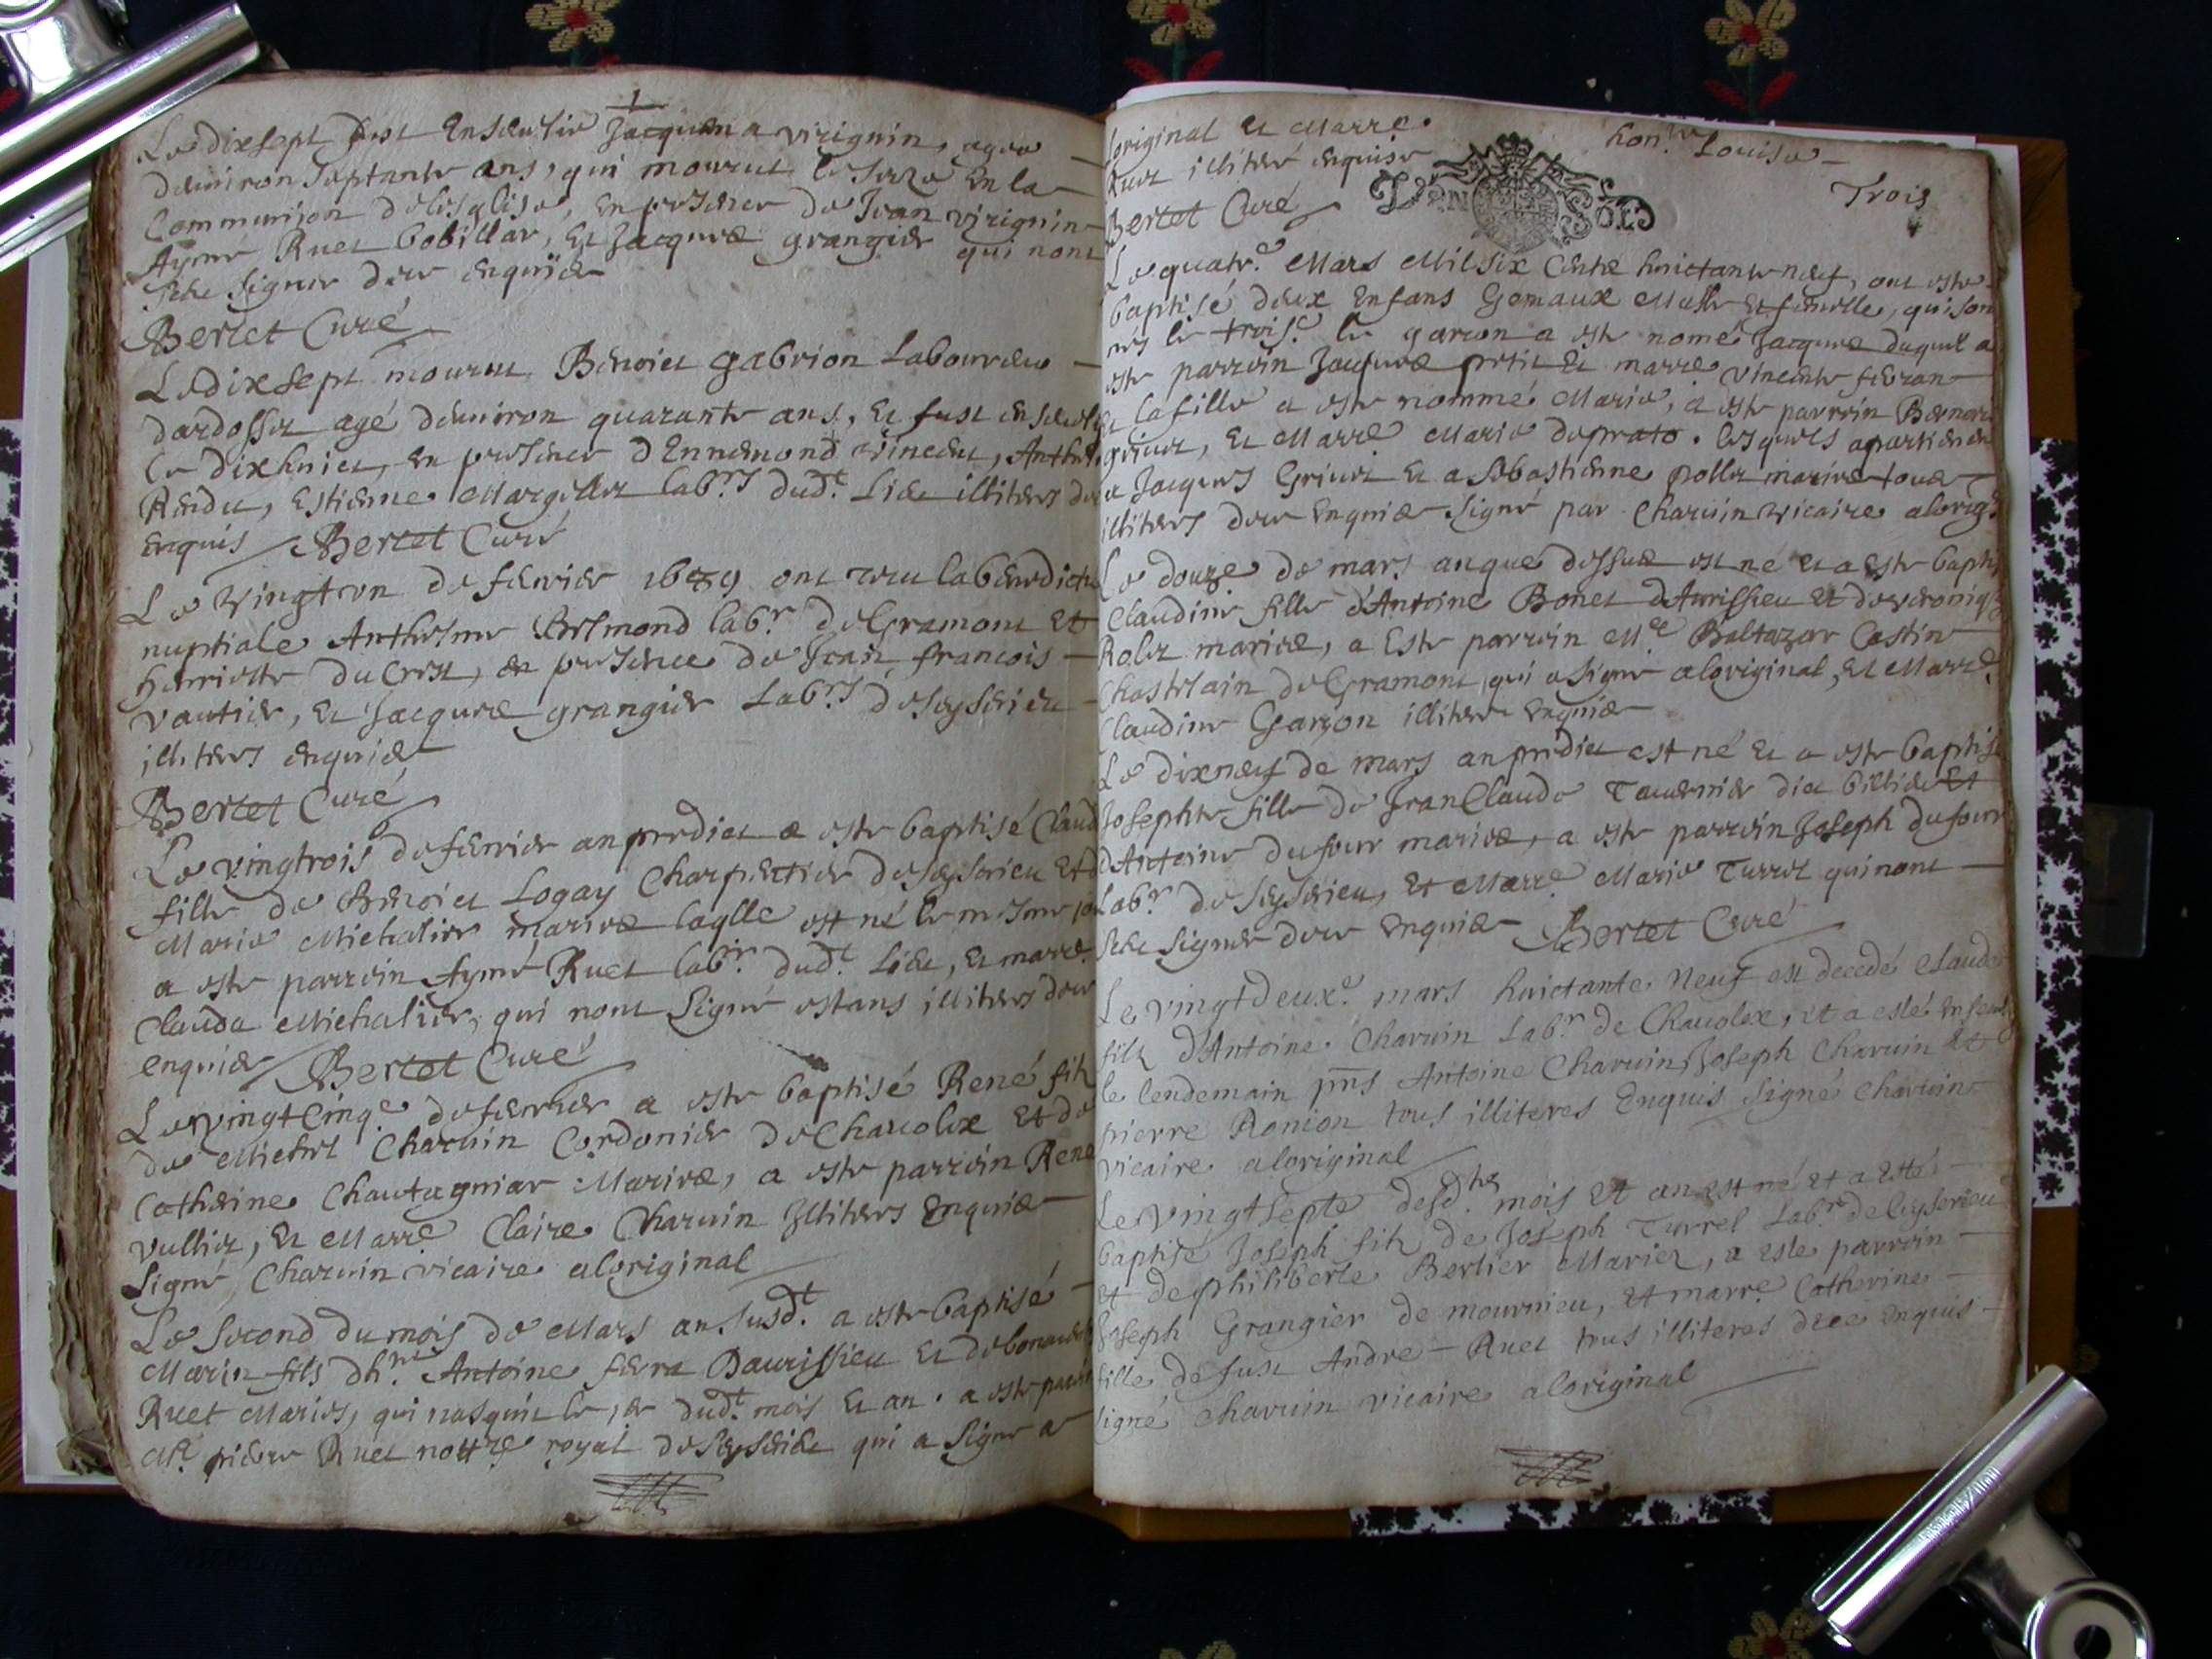 Le dixsept fust ensevelie Jacquema virignin, agee
denviron Septante ans, qui mourut le Seize en la
Communion de lesglise, en presence de Jean virignin
Aymé Ruet Cobillar, Et Jacques grangier qui nont
sceu signer de ce enquis
Bertet Curé
Le dixsept mourut Benoict gabrion Laboureur
dardosset agé denviron quarante ans, Et fust ensevely
Le dixhuict, en presence dEnnemond vincent, Anthel
Rendu, Estienne Margillet lab.rs dud.t Lieu illiteres de
enquis Bertet Curé
Le vingtun de febvrier 1689 ont receu la benedictio
nuptiale Anthelme Belmond lab.r de Gramont Et
henriette Du Crest, en presence de Jean francois
vautier, Et Jacques grangier Lab.rs de Seyserieu
illiteres enquis
Bertet Curé
Le vingtrois de febvrier an predict a esté baptisé Claud
fille de Benoict Logay Charpentier de Seyserieu Et d
Marie Michalier mariés laqlle est né le mesme jo
a esté parrein Aymé Ruet lab.r dud.t Lieu, Et marre
Clauda Michalier, qui nont Signé estans illiteres de ce
enquis Bertet Curé
Le vingtcinq.e de febvrier a esté baptisé René filz
de Michel Charvin Cordonier de Chavolex Et de
Catherine Chautagniar Mariés, a esté parrein René
vulliet, Et Marre Claire Charvin Illiteres Enquis
Signé Charvin vicaire aloriginal
Le Second du mois de Mars an susd.t a esté baptisé
Marin fils dh.re Antoine febra Daurissieu Et de bonavent
Ruet Mariés, qui nasquit le 1er dud.t mois Et an . a esté parrei
M.e pierre Ruet nottre royal de Seyserieu qui a Signé a
loriginal Et Marre
hon.te Louise
Ruet illiteré enquise
Trois
Bertet Curé
Le quatr.e Mars Mil six Cents huictante neuf, ont esté
baptisé deux Enfans Gemaux Masle Et femelle, qui son
nés le trois.e le garcon a esté nomé Jacques duquel a
esté parrein Jacques petit Et marre vincente febran
Et la fille a esté nommé Marie, a esté parrein Bernard
grivet, Et Marre Marie duprato . lesquels apartienen
a Jacques Grivet Et a Sebastienne pollet mariés tous
illiteres de ce Enquis Signé par Charvin vicaire alorig.l
Le douze de mars anque dessus est né Et a Esté bapti
Claudine fille dAntoine Bonet dAurissieu Et de veroniq
Rolet mariés, a Esté parrein M.e Baltazar Castin
Chastelain de Gramont qui a Signé aloriginal, Et Marre
Claudine Garzon illiteree enquise
Le dixneuf de mars an predict est né Et a esté baptisé
Josephte fille de Jean Claude Tavernier dit billiet Et
dAntoine dufour mariés, a esté parrein Joseph dufour
Lab.r de Seyserieu, Et Marre Marie Turrel qui nont
sceu signer de ce Enquis Bertet Curé
Le vingtdeux.e mars huictante Neuf est decedé Claude
filz dAntoine Charvin Lab.r de Chavolex, et a esté ensevely
le lendemain pnts Antoine Charvin, Joseph Charvin Et
pierre Ronion tous illiteres Enquis Signé Charvin
vicaire aloriginal
Le vingtsepte desd.ts mois Et an est né et a esté
baptisé Joseph filz de Joseph Turrel Lab.r de Ceyserieu
et de philiberte Bertier Mariez, a este parrein
Joseph Grangier de mournieu, et marre Catherine
fille de fust Andre Ruet tous illiteres dece enquis
Signé Charvin vicaire aloriginal